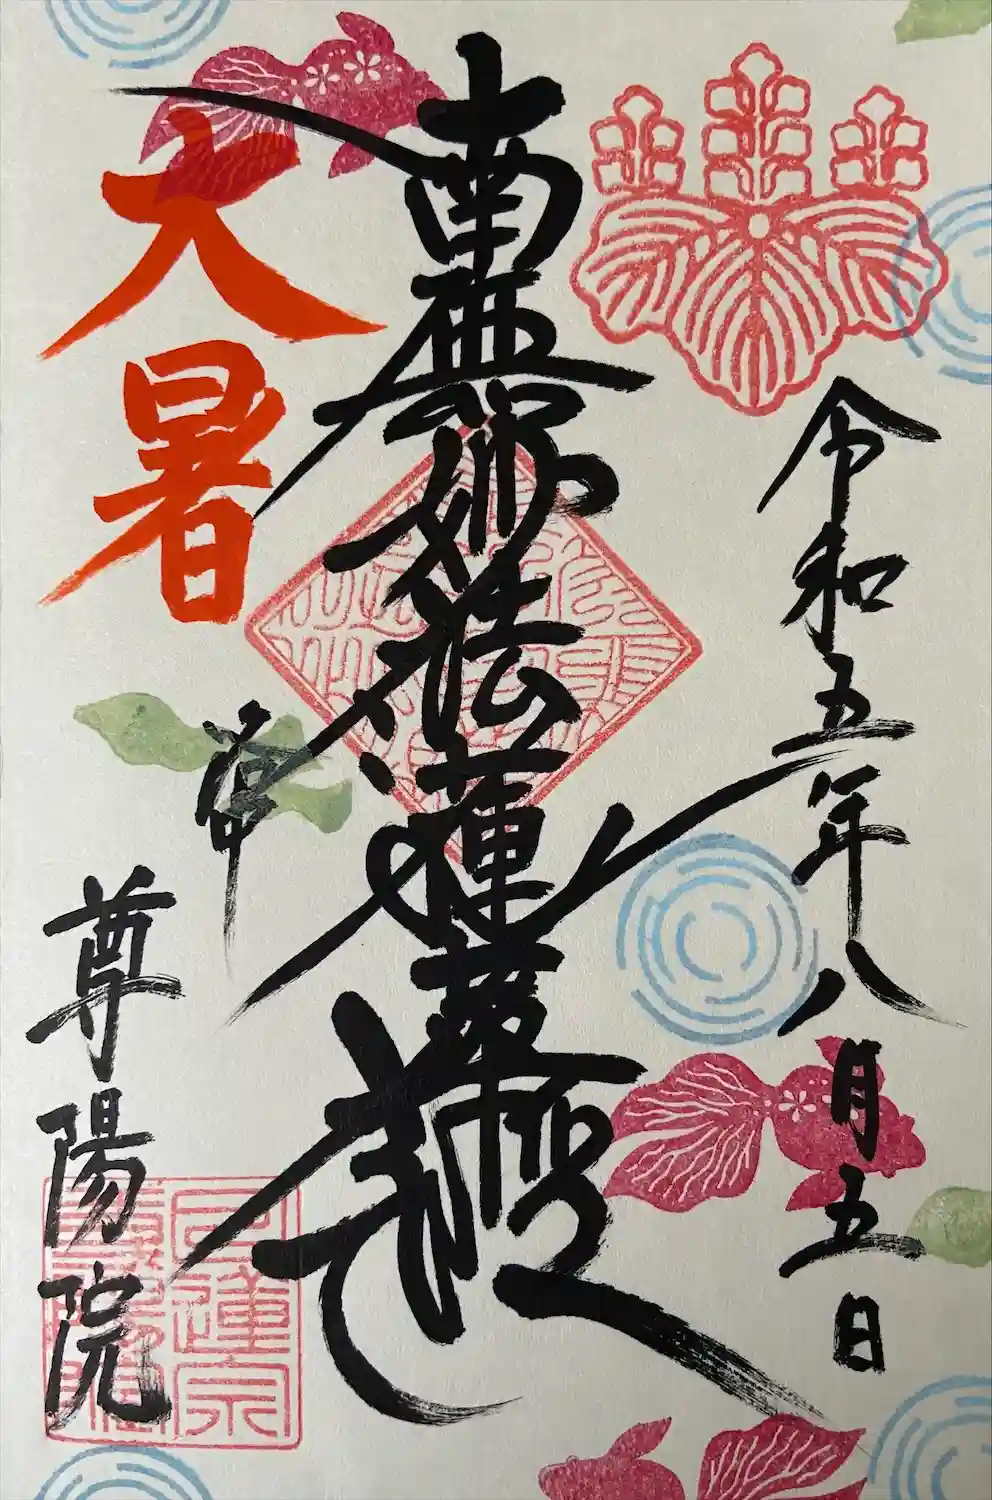 令和五年八月五日
南無妙法蓮華經
大暑
尊陽院
日蓮宗